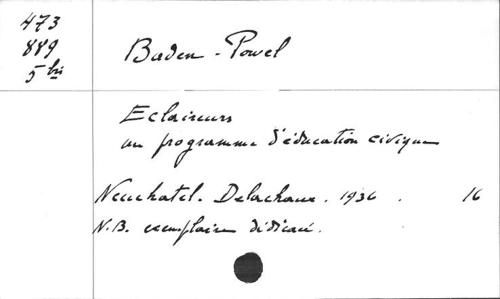 473
889
5 bis
Baden-Powel
Eclaireurs
un programme d'éducation civique
Neuchatel. Delachaux. 1936. 16
N.B. exemplaire dédicacé.